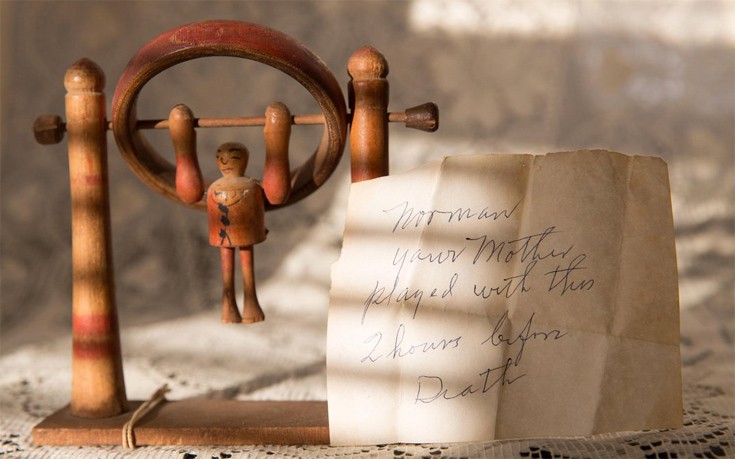 Norman
your Mother
played with this
2 hours before
Death